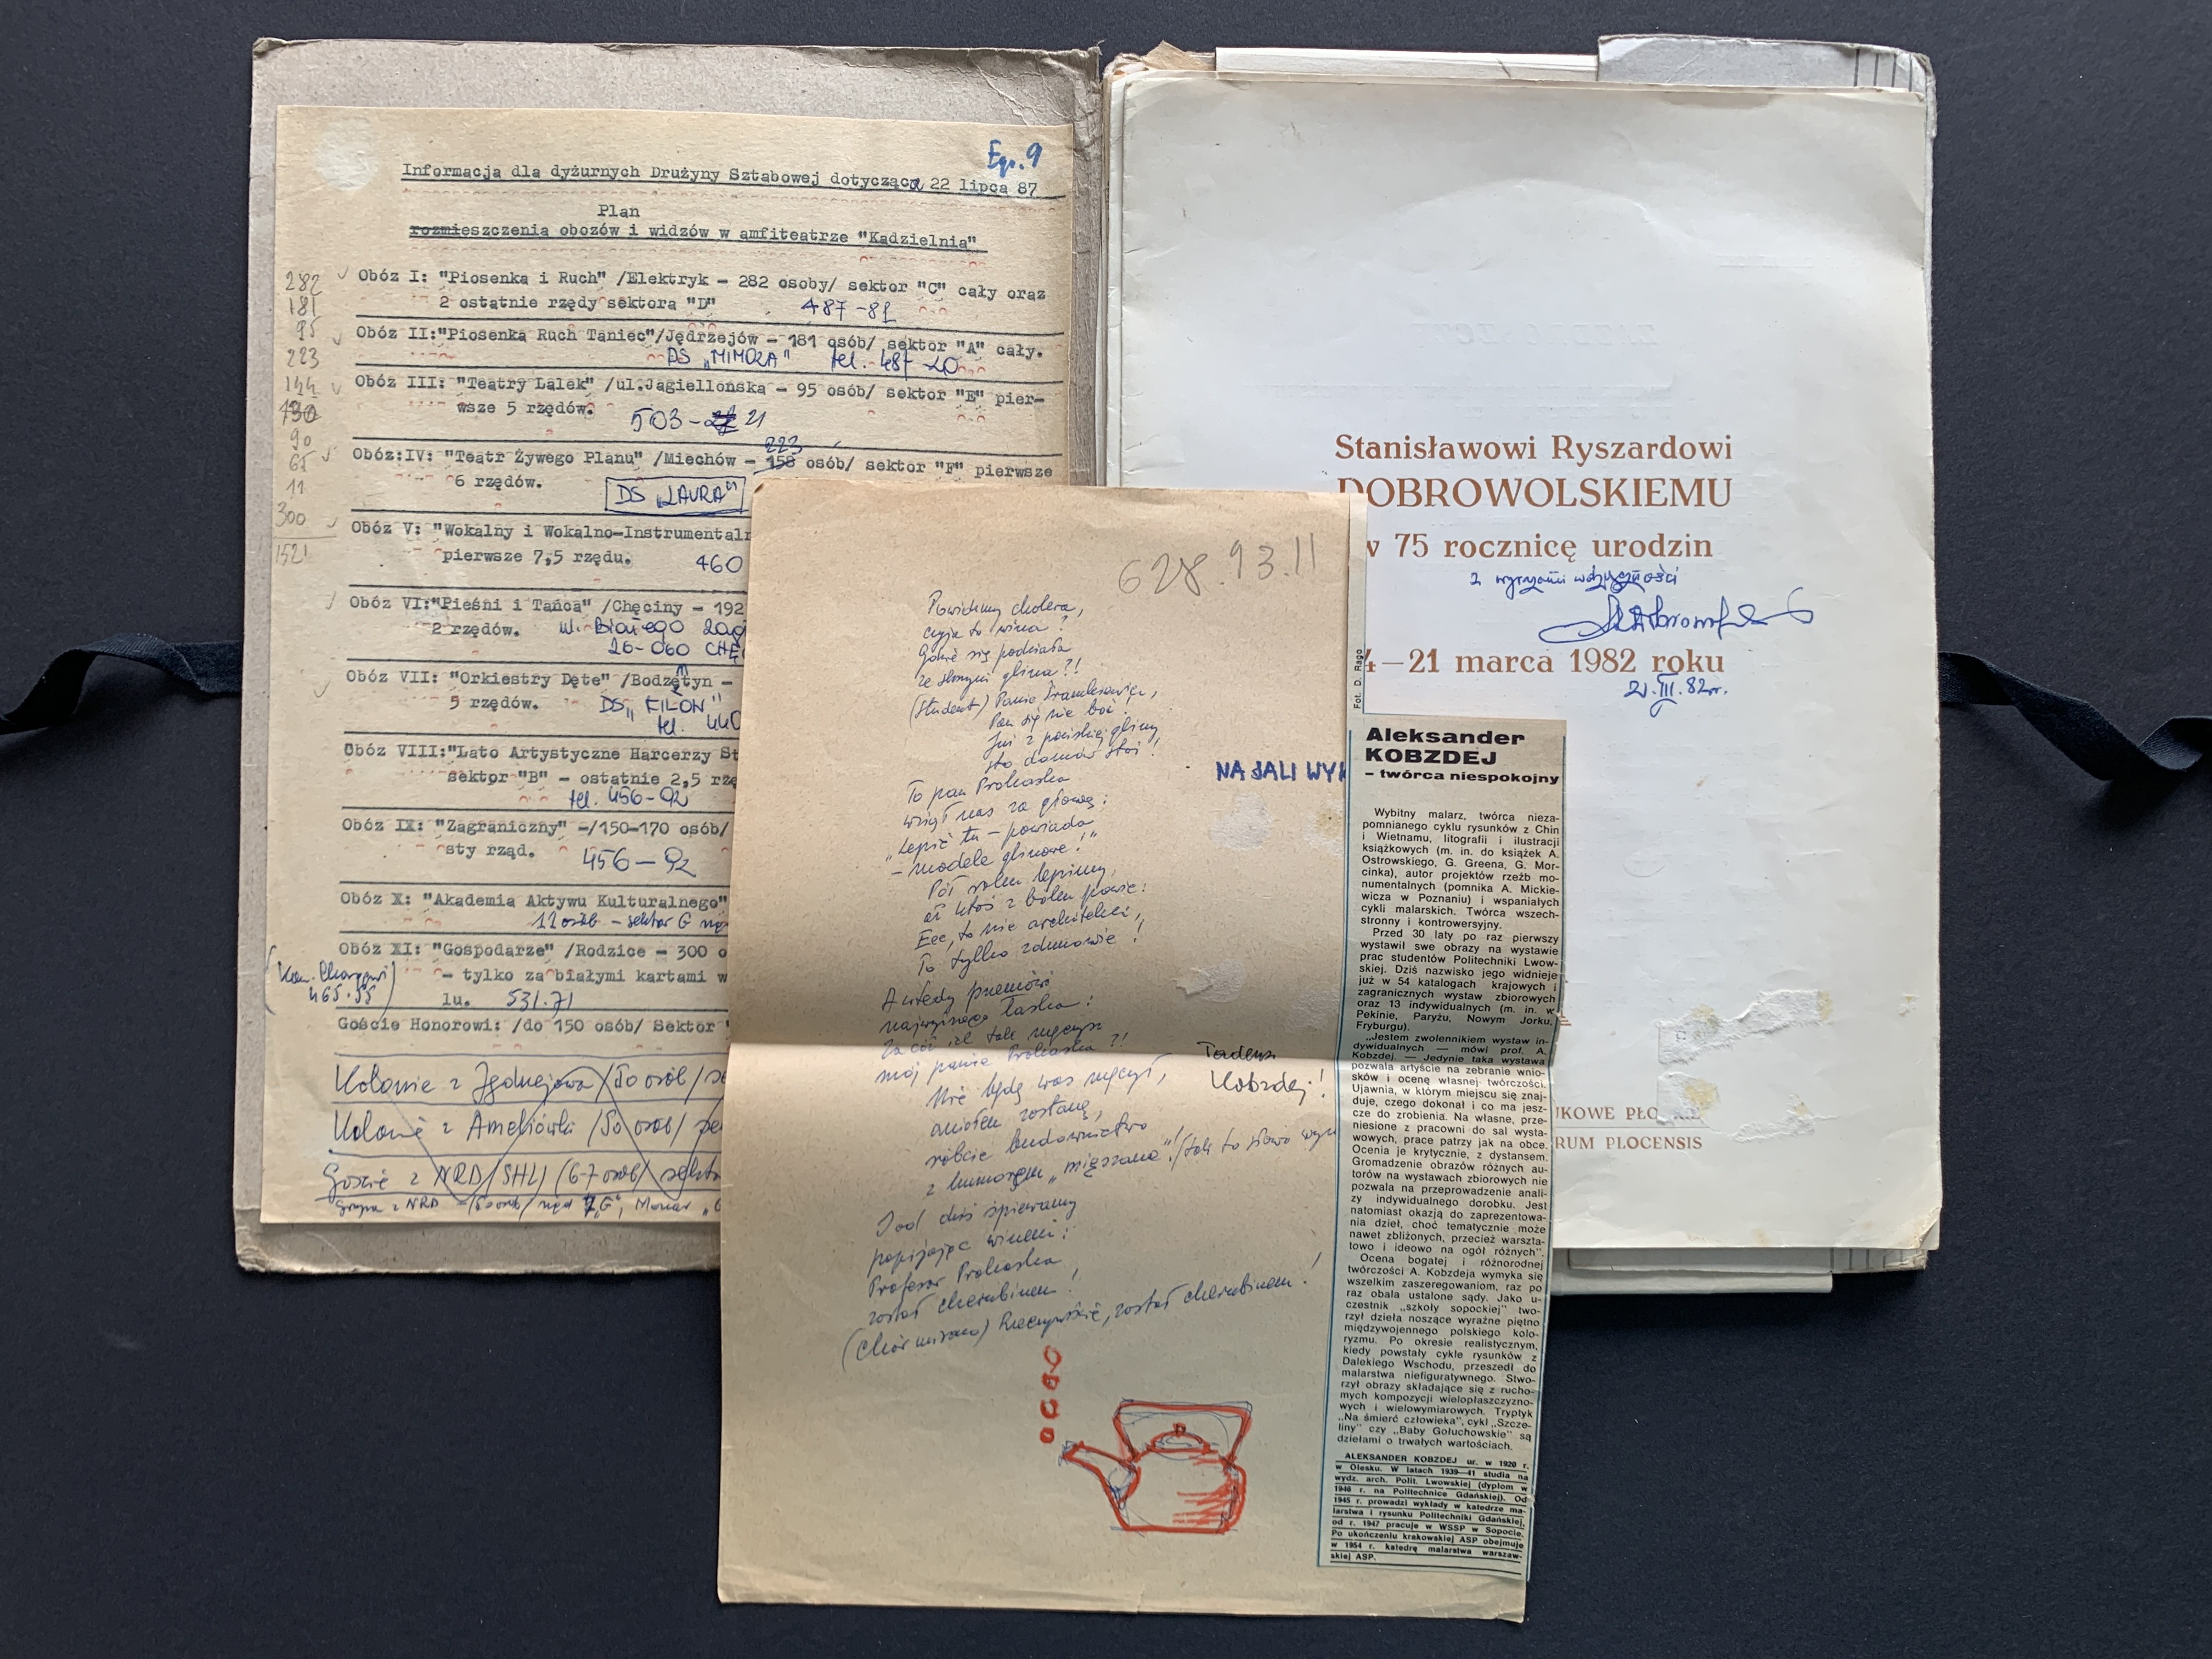 Egz. 9
Informacja dla dyżurnych Drużyny Sztabowej dotycząca 22 lipca 87
Plan
rozmieszczenia obozów i widzów w amfiteatrze "Kadzielnia"
282
181
95
223
144
190
90
65
11
300
1521
Obóz I: "Piosenka i Ruch" /Elektryk - 282 osoby/ sektor "C" cały oraz
2 ostatnie rzędy sektora "D" 487-81
Obóz II:"Piosenka Ruch Taniec"/Jędrzejów - 181 osób/ sektor "A" cały.
DS „MIMOZA" tel. 487-20
Obóz III: "Teatry Lalek" /ul.Jagiellońska - 95 osób/ sektor "E" pier-
wsze 5 rzędów. 503-21
223
Obóz:IV: "Teatr Żywego Planu" /Miechów - 158 osób/ sektor "F" pierwsze
6 rzędów. DS „LAURA"
Obóz V: "Wokalny i Wokalno-Instrumentaln
pierwsze 7,5 rzędu. 460
Obóz VI:"Pieśni i Tańca" /Chęciny - 192
2 rzędów. ul. Białego Zag
26-060 CHĘ
Obóz VII: "Orkiestry Dęte" /Bodzętyn -
5 rzędów. DS „FILON"
tel. 440
Obóz VIII:"Lato Artystyczne Harcerzy St
sektor "B" - ostatnie 2,5 rzę
tel. 456-92
Obóz IX: "Zagraniczny" -/150-170 osób/
sty rząd. 456-92
Obóz X: "Akademia Aktywu Kulturalnego"
11 osób - sektor G
Obóz XI: "Gospodarze" /Rodzice - 300 o
- tylko za białymi kartami w
lu. 531.71
(Kom. Chorągwi
465.55)
Goście Honorowi: /do 150 osób/ Sektor "
Kolonie z Jędrzejowa /50 osób/ se
Kolonie z Ameliówki /50 osób/ se
Goście z NRD/SHL/ (6-7 osób/ sekto
Grupa z NRD
628.93.11
Powiedzmy cholera,
czyja to wina?
Gdzie się podziała
ze słomą glina?!
(student) Panie
Pan się nie boi
Już z pańskiej gliny
sto domów stoi!
To pan Prohaska
wziął nas za głowę:
„Lepić tu – powiada
– modele glinowe!"
Pół roku lepimy,
aż ktoś z bólem powie:
Eee, to nie architekci,
To tylko zdunowie!
A wtedy przemówi
najwyższego łaska:
Za cóż ich tak męczysz
mój panie Prohaska?!
Nie będę was męczył,
aniołem zostanę,
róbcie budownictwo
z humorem „mięszane"! (tak to słowo wym
I od dziś śpiewamy
popijając winem:
Profesor Prohaska
został cherubinem!
(Chór mieszany) Rzeczywiście, został cherubinem!
Tadeusz
Kobzdej!
NA SALI WYK
Stanisławowi Ryszardowi
DOBROWOLSKIEMU
w 75 rocznicę urodzin
z wyrazami wdzięczności
4–21 marca 1982 roku
21.III.82r.
UKOWE PŁOCKIE
RUM PLOCENSIS
Fot. D. Rago
Aleksander
KOBZDEJ
– twórca niespokojny
Wybitny malarz, twórca nieza-
pomnianego cyklu rysunków z Chin
i Wietnamu, litografii i ilustracji
książkowych (m. in. do książek A.
Ostrowskiego, G. Greena, G. Mor-
cinka), autor projektów rzeźb mo-
numentalnych (pomnika A. Mickie-
wicza w Poznaniu) i wspaniałych
cykli malarskich. Twórca wszech-
stronny i kontrowersyjny.
Przed 30 laty po raz pierwszy
wystawił swe obrazy na wystawie
prac studentów Politechniki Lwow-
skiej. Dziś nazwisko jego widnieje
już w 54 katalogach krajowych i
zagranicznych wystaw zbiorowych
oraz 13 indywidualnych (m. in. w
Pekinie, Paryżu, Nowym Jorku,
Fryburgu).
„Jestem zwolennikiem wystaw in-
dywidualnych — mówi prof. A.
Kobzdej. — Jedynie taka wystawa
pozwala artyście na zebranie wnio-
sków i ocenę własnej twórczości.
Ujawnia, w którym miejscu się znaj-
duje, czego dokonał i co ma jesz-
cze do zrobienia. Na własne, prze-
niesione z pracowni do sal wysta-
wowych, prace patrzy jak na obce.
Ocenia je krytycznie, z dystansem.
Gromadzenie obrazów różnych au-
torów na wystawach zbiorowych nie
pozwala na przeprowadzenie anali-
zy indywidualnego dorobku. Jest
natomiast okazją do zaprezentowa-
nia dzieł, choć tematycznie może
nawet zbliżonych, przecież warszta-
towo i ideowo na ogół różnych".
Ocena bogatej i różnorodnej
twórczości A. Kobzdeja wymyka się
wszelkim zaszeregowaniom, raz po
raz obala ustalone sądy. Jako u-
czestnik „szkoły sopockiej" two-
rzył dzieła noszące wyraźne piętno
międzywojennego polskiego kolo-
ryzmu. Po okresie realistycznym,
kiedy powstały cykle rysunków z
Dalekiego Wschodu, przeszedł do
malarstwa niefiguratywnego. Stwo-
rzył obrazy składające się z rucho-
mych kompozycji wielopłaszczyzno-
wych i wielowymiarowych. Tryptyk
„Na śmierć człowieka", cykl „Szcze-
liny" czy „Baby Gołuchowskie" są
dziełami o trwałych wartościach.
ALEKSANDER KOBZDEJ ur. w 1920 r.
w Olesku. W latach 1939—41 studia na
wydz. arch. Polit. Lwowskiej (dyplom w
1946 r. na Politechnice Gdańskiej). Od
1945 r. prowadzi wykłady w katedrze ma-
larstwa i rysunku Politechniki Gdańskiej,
od r. 1947 pracuje w WSSP w Sopocie.
Po ukończeniu krakowskiej ASP obejmuje
w 1954 r. katedrę malarstwa warszaw-
skiej ASP.